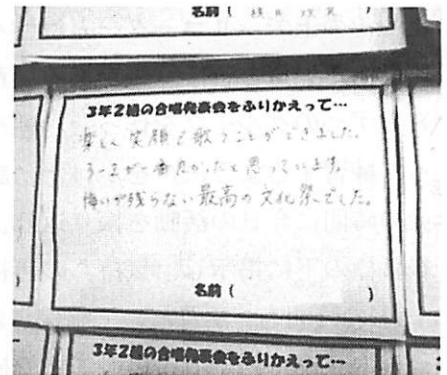 名前(
3年2組の合唱発表会をふりかえって…
楽しく笑顔で歌うことができました。
3-2が一番良かったと思っています。
悔いが残らない最高の文化祭でした。
名前( )
3年2組の合唱発表会をふりかえって…